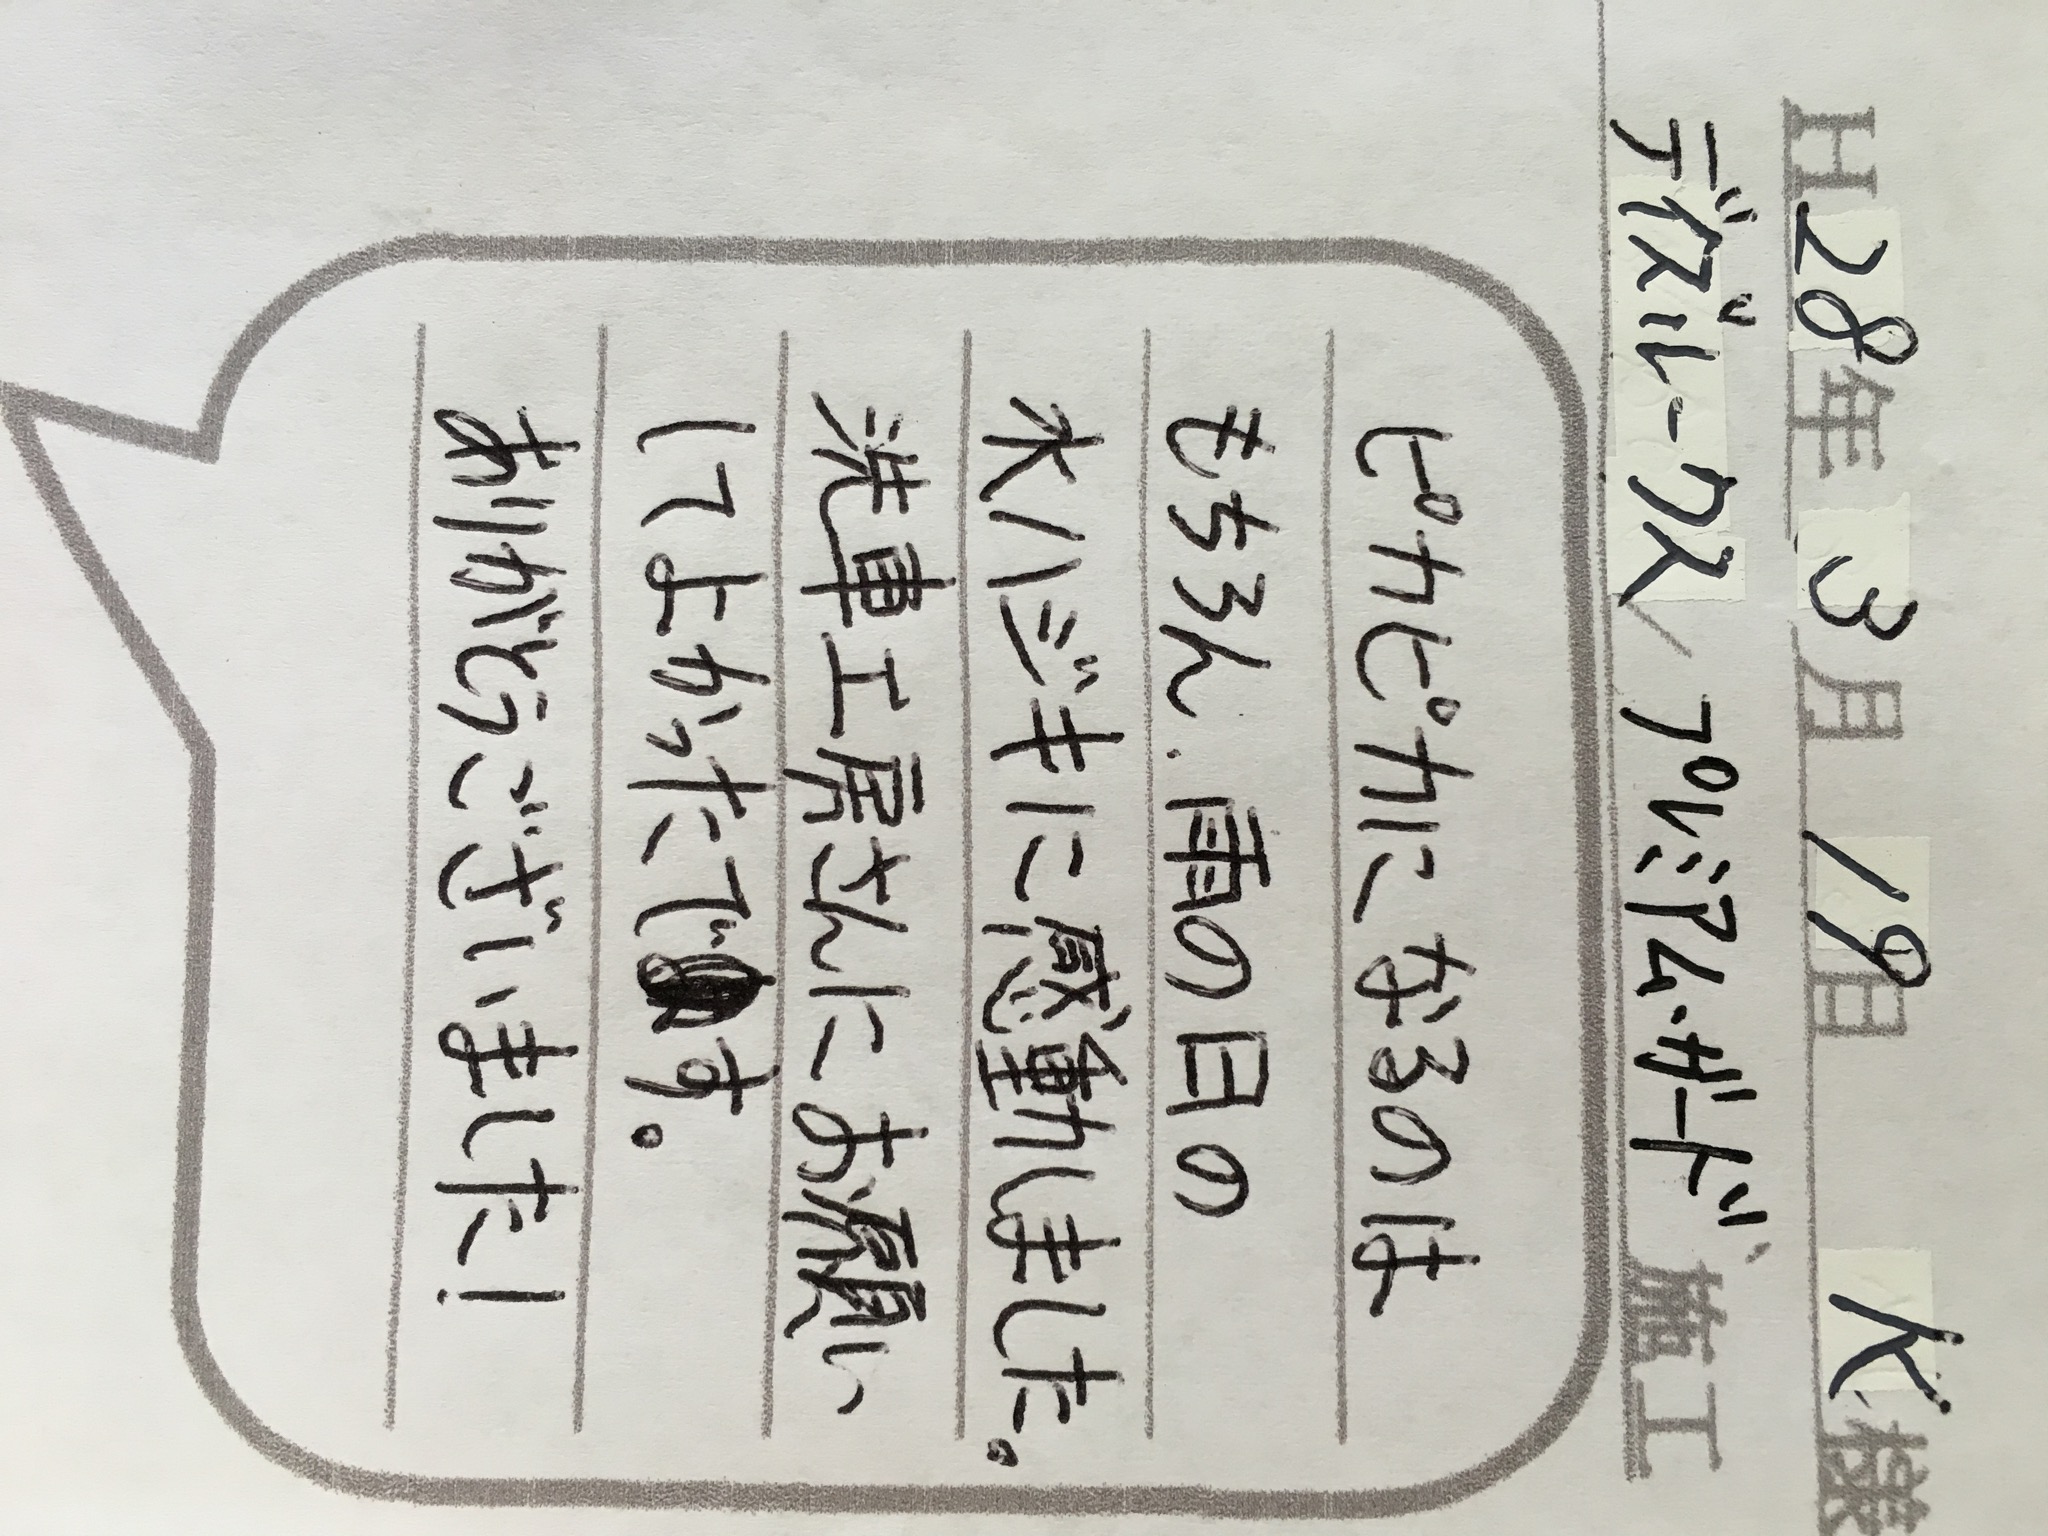 H28年3月19日 K様
デイズルークス/プレミアム・ガード 施工
ピカピカになるのは
もちろん、雨の日の
水ハジキに感動しました。
洗車工房さんにお願い
してよかったです。
ありがとうございました!